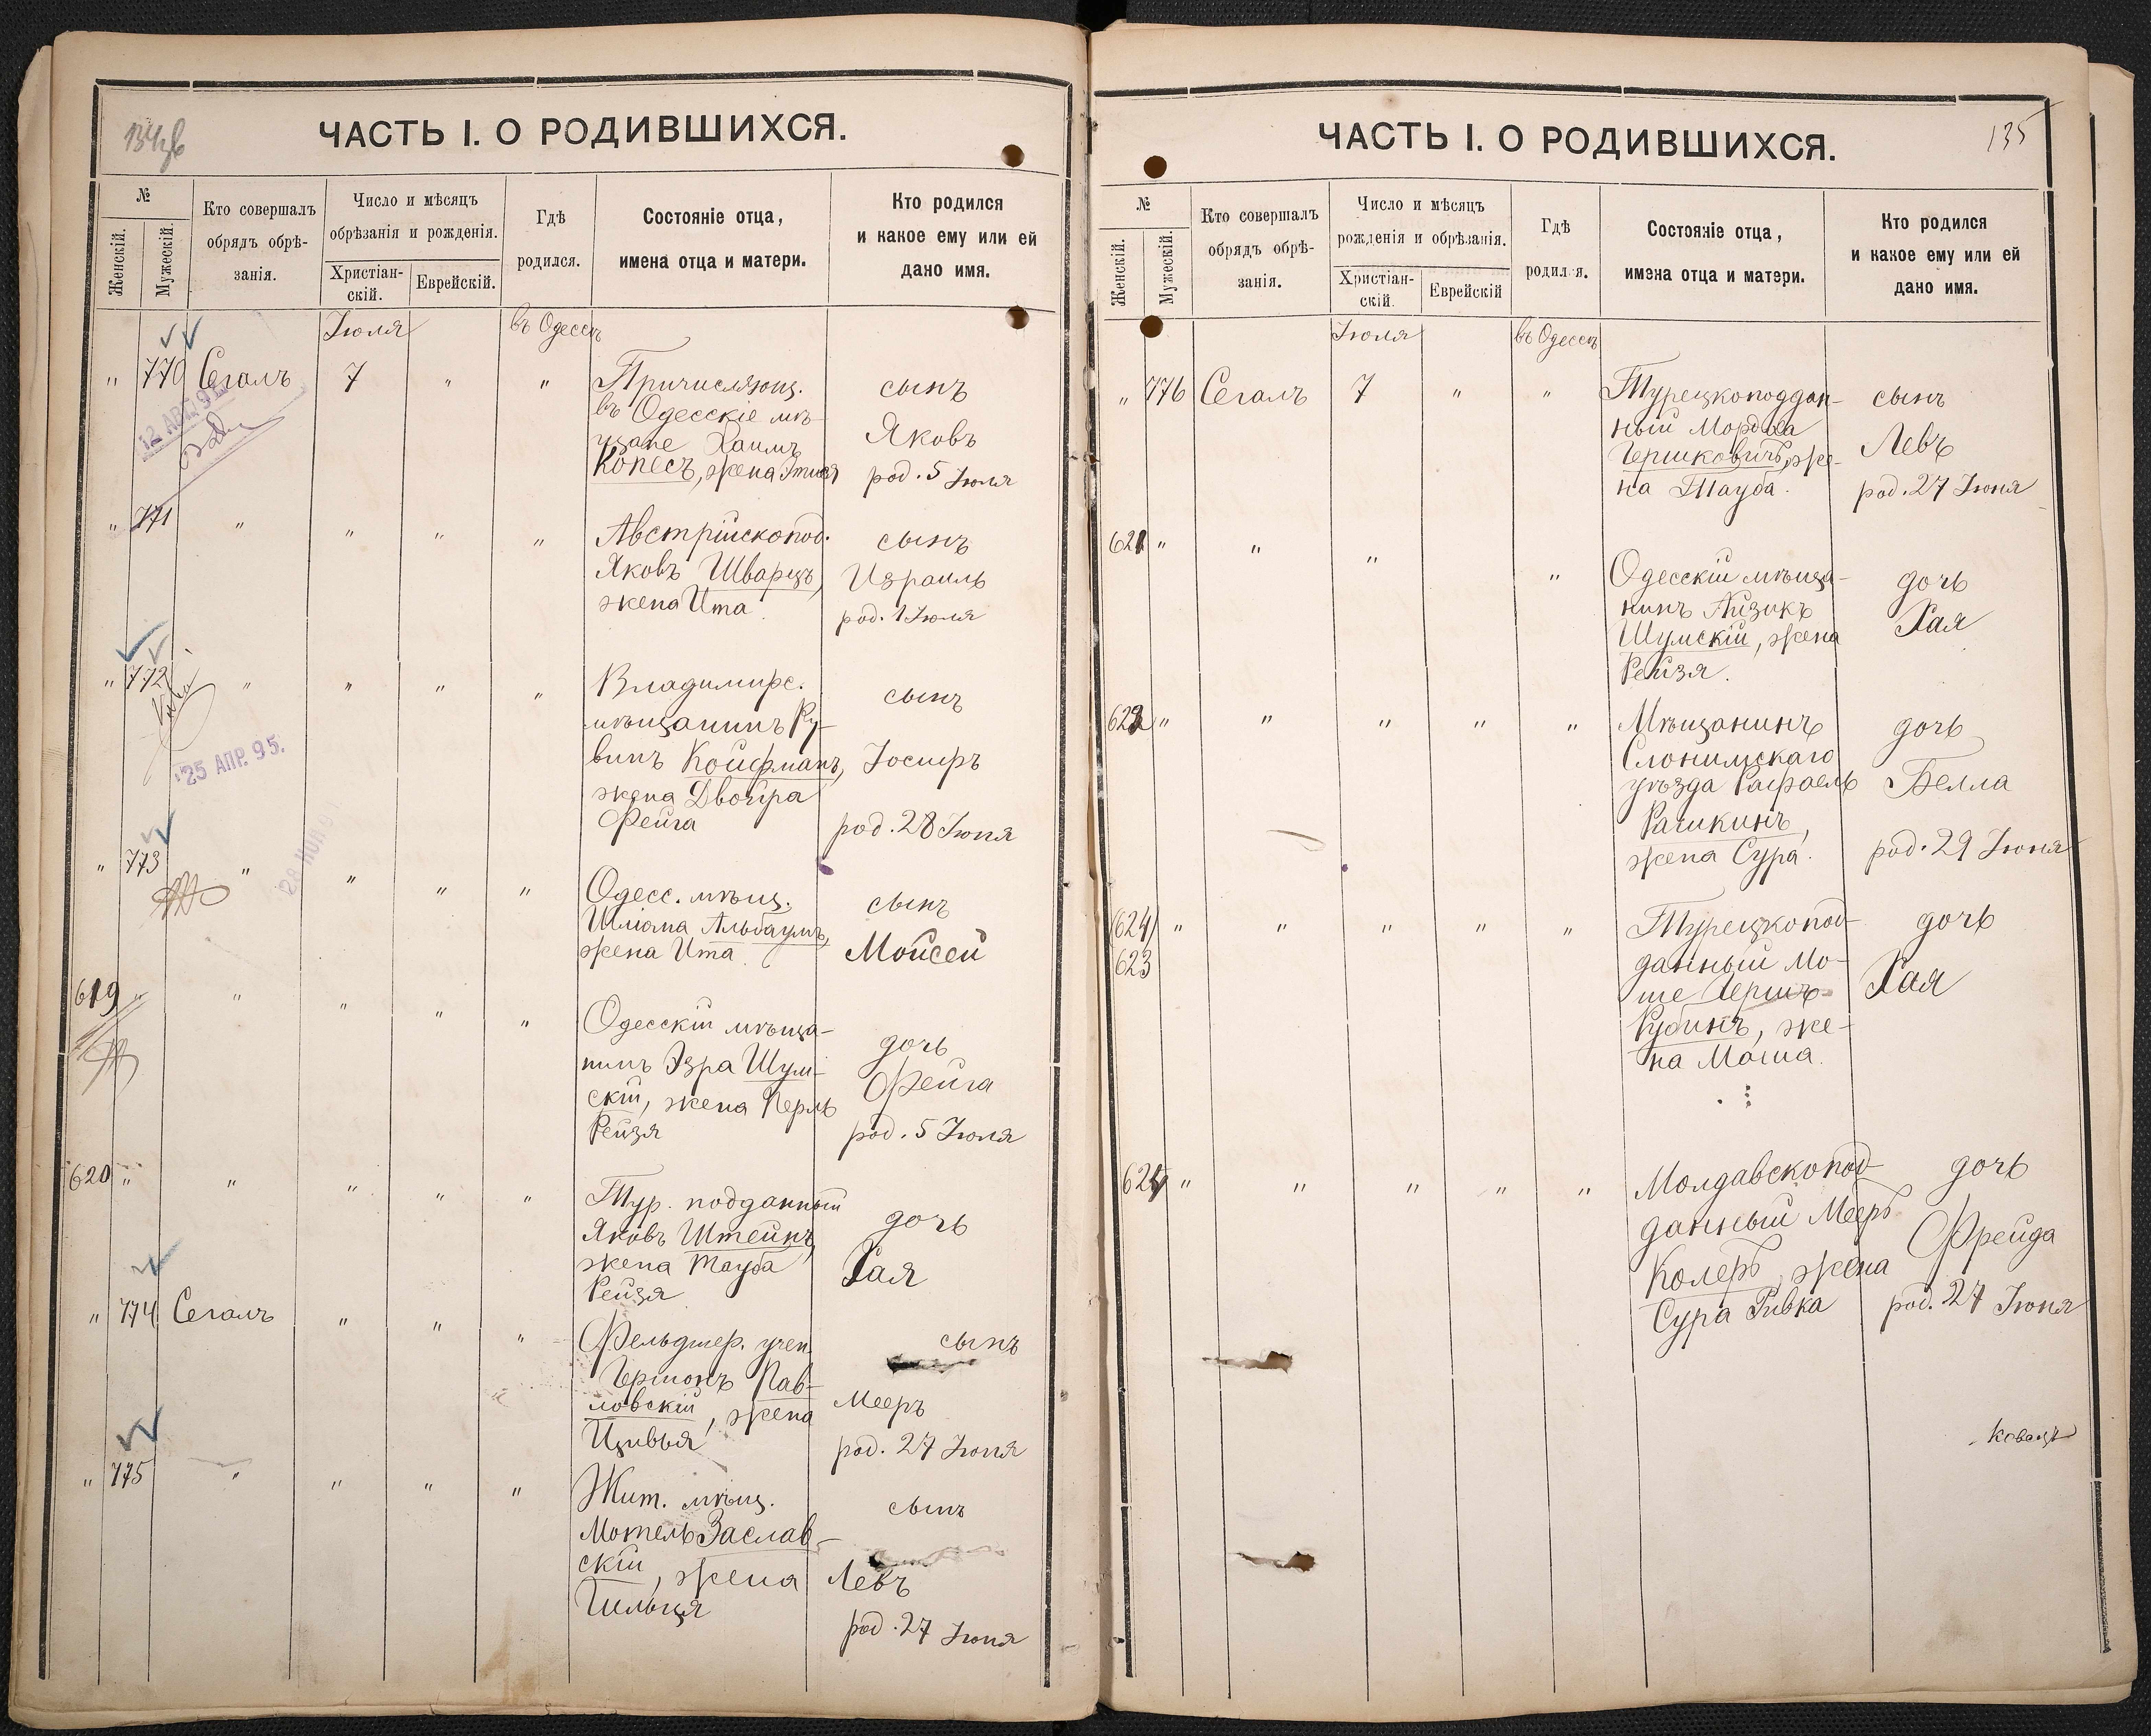 ЧАСТЬ I. О РОДИВШИХСЯ.
№
Женскій.
Мужескій.
Кто совершалъ
обрядъ обрѣ-
занія.
Число и мѣсяцъ
обрѣзанія и рожденія.
Христіан-
скій.
Еврейскій.
Гдѣ
родился.
Состояніе отца,
имена отца и матери.
Кто родился
и какое ему или ей
дано имя.
Іюля
въ Одессѣ
" 770 Сегалъ 7 " "
Причисляющ.
въ Одесскіе мѣ-
щане Хаимъ
Копесъ, жена
сынъ
Яковъ
род. 5 Іюля
12 АВГ. 9
" 771 " " " "
Австрійскопод.
Яковъ Шварцъ,
жена Ита
сынъ
Израиль
род. 1 Іюля
" 772 " " " "
Владимирс.
мѣщанинъ Ру-
винъ Койфманъ,
жена Двойра
Фейга
сынъ
Іосифъ
род. 28 Іюня
25 АПР. 95.
" 773 " " " "
Одесс. мѣщ.
Шліома Альбаумъ,
жена Ита
сынъ
Мойсей
619 " " " " "
Одесскій мѣща-
нинъ Эзра Шум-
скій, жена Перль
Рейзя
дочь
Фейга
род. 5 Іюля
620 " " " " "
Тур. подданный
Яковъ Штейнъ,
жена Тауба
Рейзя
дочь
Хая
" 774 Сегалъ " " "
Фельдшер. учен.
Гершонъ Пав-
ловскій, жена
Цивья
сынъ
Мееръ
род. 27 Іюня
" 775 " " " "
Жит. мѣщ.
Мотель Заслав-
скій, жена
сынъ
Левъ
род. 27 Іюня
135
ЧАСТЬ I. О РОДИВШИХСЯ.
№
Женскій.
Мужескій.
Кто совершалъ
обрядъ обрѣ-
занія.
Число и мѣсяцъ
рожденія и обрѣзанія.
Христіан-
скій.
Еврейскій
Гдѣ
родился.
Состояніе отца,
имена отца и матери.
Кто родился
и какое ему или ей
дано имя.
Іюля
въ Одессѣ
" 776 Сегалъ 7 " "
Турецкоподдан-
ный Мордха
Гершковичъ, же-
на Тауба.
сынъ
Левъ
род. 27 Іюня
621 " " " "
Одесскій мѣща-
нинъ Айзикъ
Шумскій, жена
Рейзя.
дочь
Хая
622 " " " " "
Мѣщанинъ
Слонимскаго
уѣзда Рафаель
Рашкинъ,
жена Сура.
дочь
Белла
род. 29 Іюня
624 " " " " "
623
Турецкопод-
данный Мо-
ше Гершъ
Рубинъ, же-
на Маша.
дочь
Хая
624 " " " " "
Молдавскопод-
данный Мееръ
Колеръ, жена
Сура Ривка
дочь
Фрейда
род. 27 Іюня